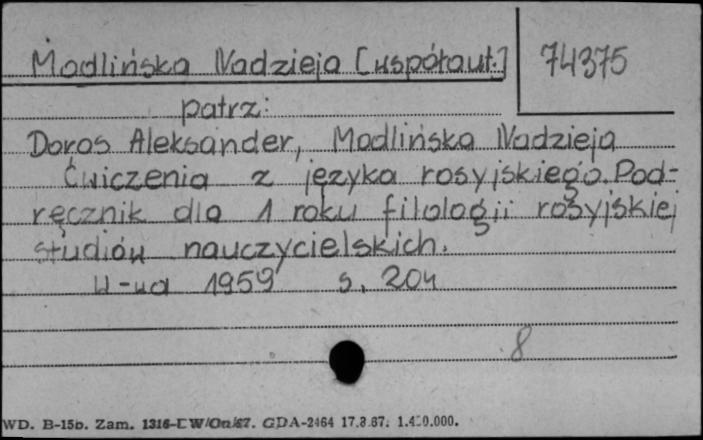 Modlińska Nadzieja [współaut.] 74375
patrz:
Doros Aleksander, Modlińska Nadzieja
Ćwiczenia z języka rosyjskiego. Pod-
ręcznik dla 1 roku filologii rosyjskiej
studiów nauczycielskich.
W-wa 1959 s. 204
8
WD. B-15b. Zam. GDA-2464 17.8.67.